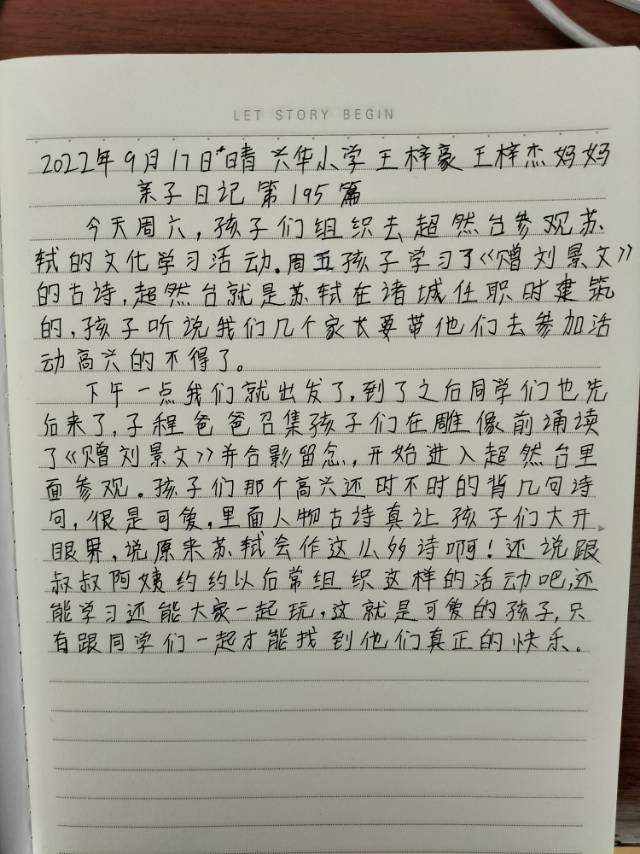 LET STORY BEGIN
2022年9月17日*晴 兴华小学 王梓豪 王梓杰妈妈
亲子日记 第195篇
今天周六，孩子们组织去超然台参观苏
轼的文化学习活动。周五孩子学习了《赠刘景文》
的古诗，超然台就是苏轼在诸城任职时建筑
的，孩子听说我们几个家长要带他们去参加活
动高兴的不得了。
下午一点我们就出发了，到了之后同学们也先
后来了，子程爸爸召集孩子们在雕像前诵读
了《赠刘景文》并合影留念，开始进入超然台里
面参观。孩子们那个高兴还时不时的背几句诗
句，很是可爱，里面人物古诗真让孩子们大开
眼界，说原来苏轼会作这么多诗啊！还说跟
叔叔阿姨约约以后常组织这样的活动吧，还
能学习还能大家一起玩，这就是可爱的孩子，只
有跟同学们一起才能找到他们真正的快乐。